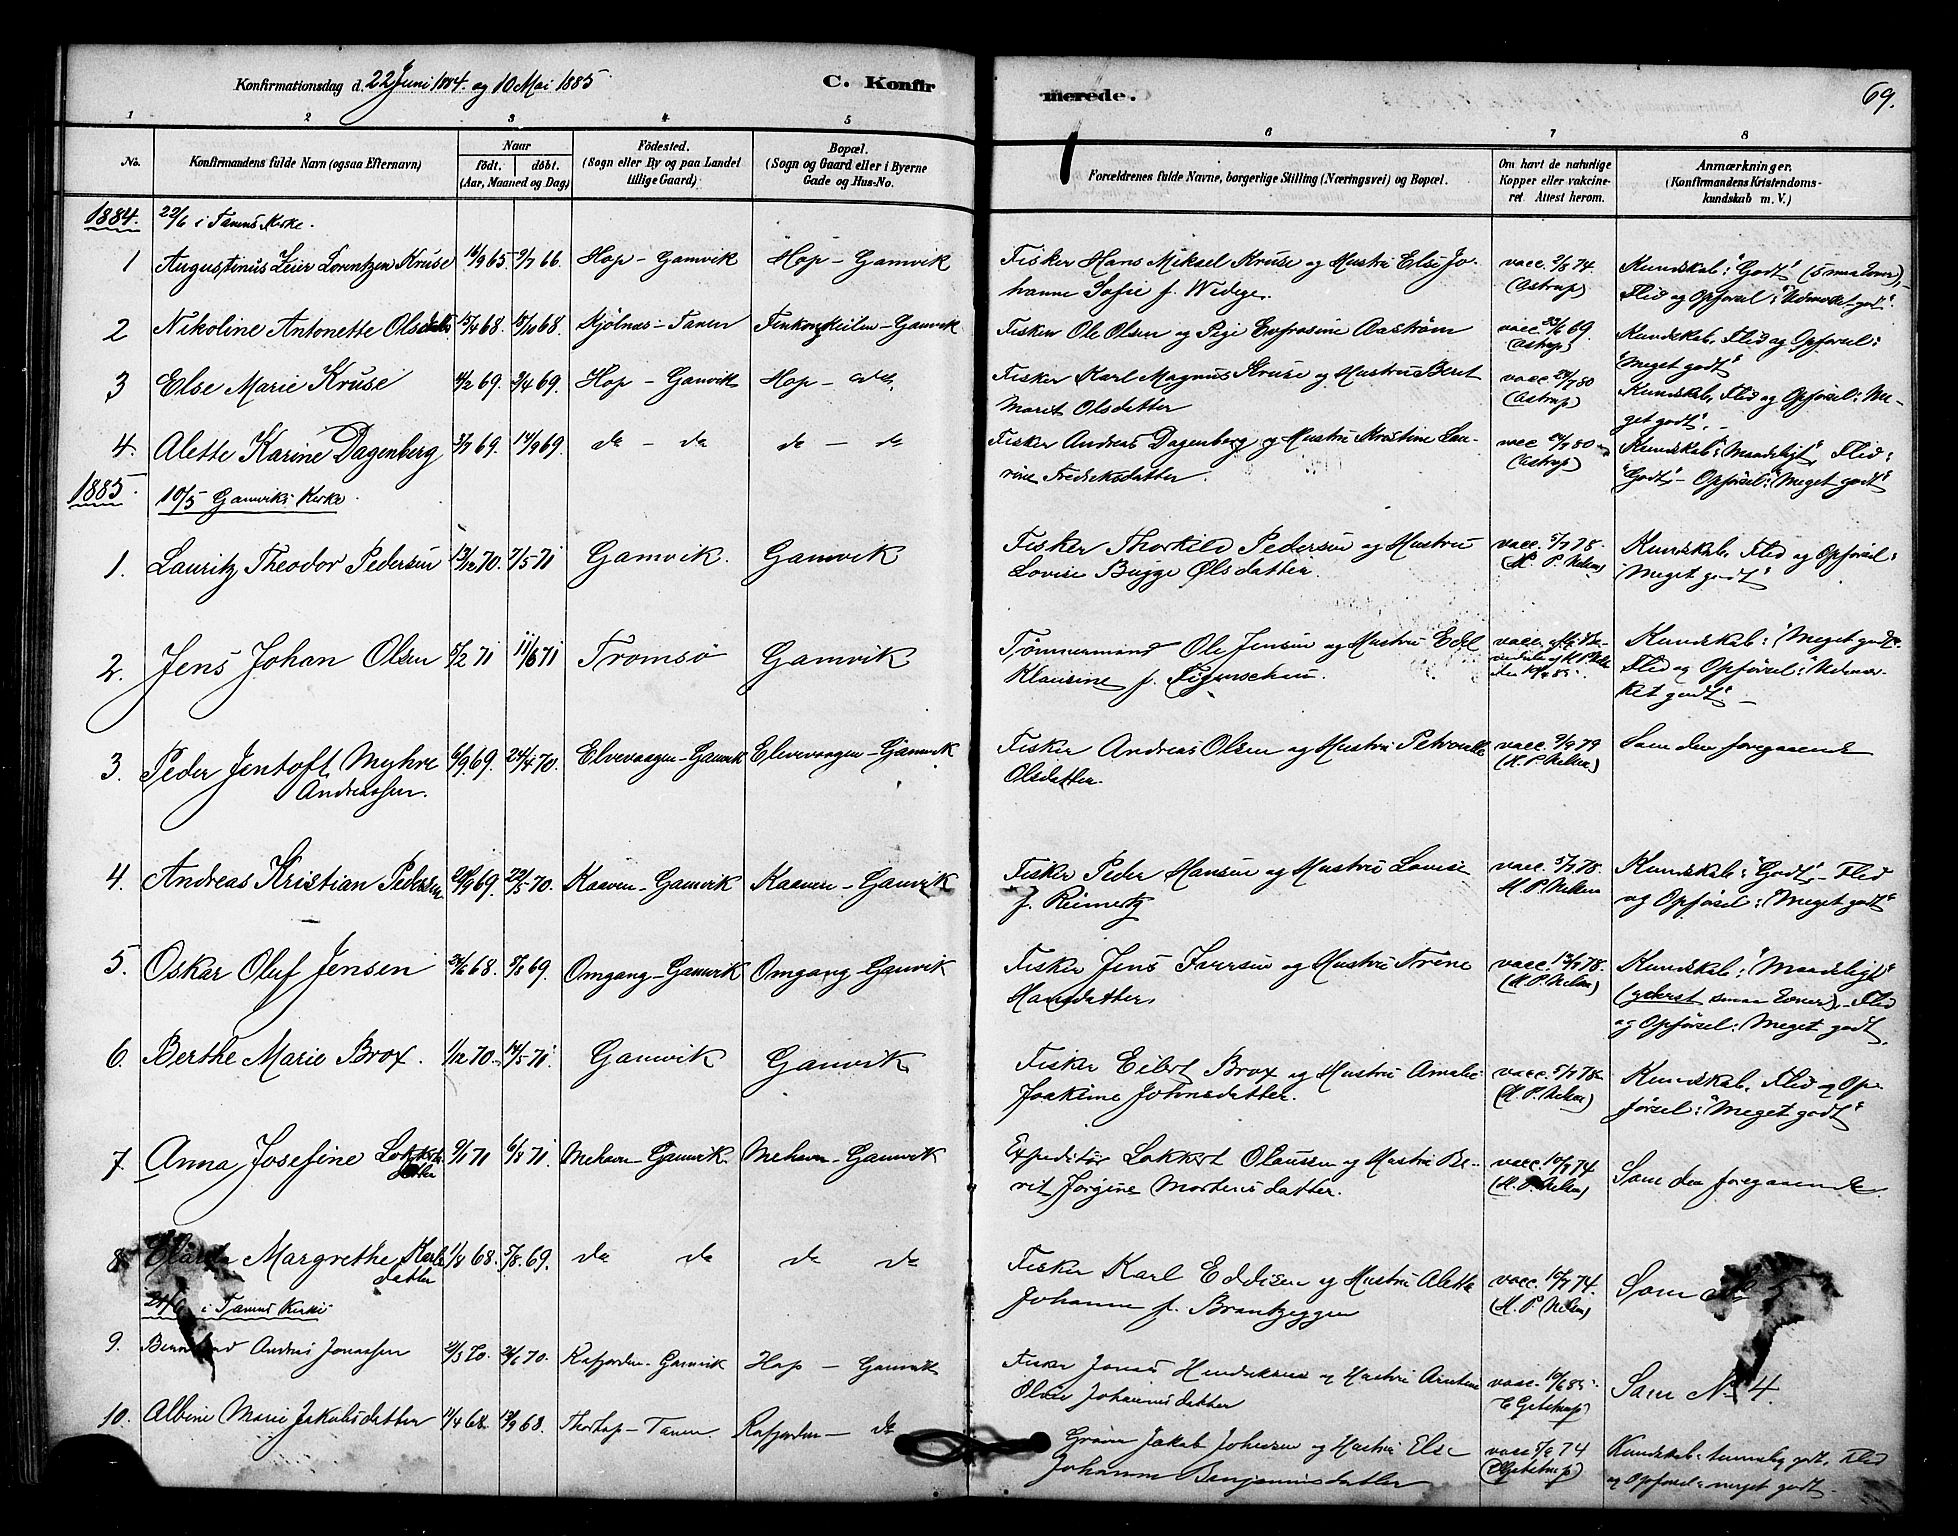 Konfirmationsdag d. 22 Juni 1884. og 10 Mai 1885 C. Konfirmerede. 69.
1 2 3 4 5 6 7 8
No. Konfirmandens fulde Navn (ogsaa Efternavn) Naar født. døbt. (Aar, Maaned og Dag)
Fødested. (Sogn eller By og paa Landet tillige Gaard)
Bopæl. (Sogn og Gaard eller i Byerne Gade og Hus-No.
Forældrenes fulde Navne, borgerlige Stilling (Næringsvei) og Bopæl.
Om havt de naturlige Kopper eller vakcineret. Attest herom.
Anmærkninger. (Konfirmandens Kristendomskundskab m. V.)
1884. 22/6 i Tanens Kirke.
1 Augustinus Zeier Lorentzen Kruse 16/9 65. 2/7 66. Hop - Gamvik Hop - Gamvik Fisker Hans Mikael Kruse og Hustru Else Jo- vacc. 2/8 74. Kundskab: "Godt" (smaa Evner),
hanne Sofie f. Wedege. (Astrup) Flid og Opførsel: "Udmærket godt".
2 Nikoline Antonette Olsdatter 15/4 68. 18/10 68. Kjølnæs - Tanen Finkongkeilen - Gamvik Fisker Ole Olsen og Pige Eufrosine Aastrøm vacc. 23/6 69. Kundskab, Flid og Opførsel:
(Astrup) "Meget godt"
3 Else Marie Kruse 11/2 69. 3/4 69. Hop - Gamvik Hop - do. Fisker Karl Magnus Kruse og Hustru Beret vacc. 24/7 80 Kundskab, Flid og Opførsel: "Me-
Marit Olsdatter (Astrup) get godt".
4. Alette Karine Dagenberg 3/7 69. 14/9 69. do - do do - do Fisker Andreas Dagenberg og Hustru Kristine Lau- vacc 24/7 80 Kundskab: "Maadeligt", Flid:
rine Fredriksdatter. (Astrup) "Godt", - Opførsel: "Meget godt"
1885. 10/5 Gamviks Kirke
1. Lauritz Theodor Pedersen 13/12 70. 7/5 71 Gamvik. Gamvik Fisker Thorkild Pedersen og Hustru vacc. 5/7 78. Kundskab, Flid og Opførsel:
Lovise Bugge Olsdatter. (M. P. Nelsen) "Meget godt"
2. Jens Johan Olsen 5/2 71 11/6 71 Tromsø Gamvik Tømmermand Ole Jensen og Hustru Edel Kundskab: "Meget godt".
Klausine f. Figenschou. Flid og Opførsel: "Udmær-
ket godt".
3. Peder Jentoft Myhre 6/9 69. 24/4 70. Elvevaagen - Gamvik Elvevaagen - Gamvik Fisker Andreas Olsen og Hustru Petronelle vacc. 2/9 79 Som den foregaaende
Andreassen. Olsdatter. (M. P. Nelsen)
4. Andreas Kristian Pedersen 20/9 69. 22/5 70. Kaaven - Gamvik Kaaven - Gamvik Fisker Peder Hansen og Hustru Lovise vacc. 5/7 78. Kundskab: "Godt", - Flid
f. Reimertz M. P. Nelsen og Opførsel: "Meget godt"
5. Oskar Oluf Jensen 24/6 68. 5/1 69. Omgang - Gamvik Omgang - Gamvik Fisker Jens Iversen og Hustru Trine vacc. 13/9 78. Kundskab: "Maadeligt"
Hansdatter. (M. P. Nelsen) (yderst smaa Evner), - Flid
og Opførsel: "Meget godt
6. Berthe Marie Brox. 1/12 70. 14/5 71. Gamvik Gamvik Fisker Eilert Brox og Hustru Amalie vacc. 5/7 78. Kundskab, Flid og Op-
Joakime Johnsdatter. (M. P. Nelsen) førsel: "Meget godt"
7. Anna Josefine Lokkerts 9/1 71 6/8 71. Mehavn - Gamvik. Mehavn - Gamvik Expeditør Lokkert Olaussen og Hustru Be- vacc. 10/7 74 Som den foregaaende.
datter rit Jørgine Mortensdatter. (M. P. Nelsen)
8. Margrethe Karls 1/8 68. 5/8 69. do do do do Fisker Karl Eddisen og Hustru Alette vacc. 10/7 74. Som
datter Johanne f. Brantzeggen (M. P. Nelsen)
21/6 i Tanens Kirke
9. Andreas Jonassen 21/3 70. 26/6 70. Rafjorden - Gamvik Hop - Gamvik Fisker Jonas Hendriksen og Hustru vacc. 10/6 85. Som No 4.
Johannesdatter
10. Albine Marie Jakobsdatter 11/4 68. 13/9 68. Thorhop - Tanen. Rafjorden - do Jakob Johnsen og Hustru Else vacc 5/9 74 Kundskab: temmelig godt, Flid
Johanne Benjaminsdatter og Opførsel: meget godt.